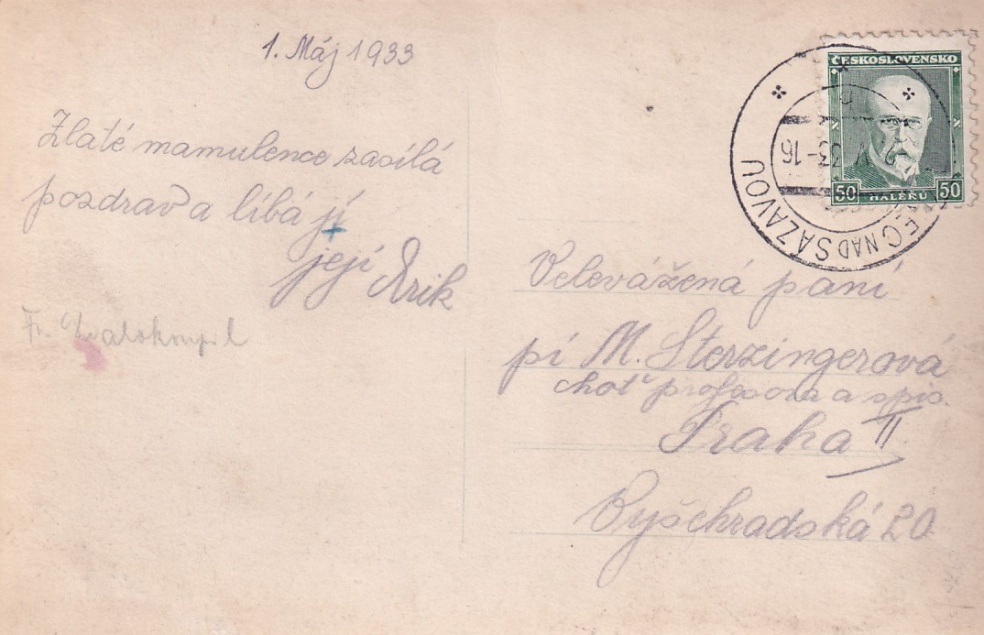 1. Máj 1933
Zlaté mamulence zasílá
pozdrav a líbá jí
její Erik
Fr.
ČESKOSLOVENSKO
50 HALÉŘŮ 50
NAD SÁZAVOU
33-16
Velevážená paní
pí M. Sterzingerová
choť profesora a spis.
Praha II
Vyšehradská 20